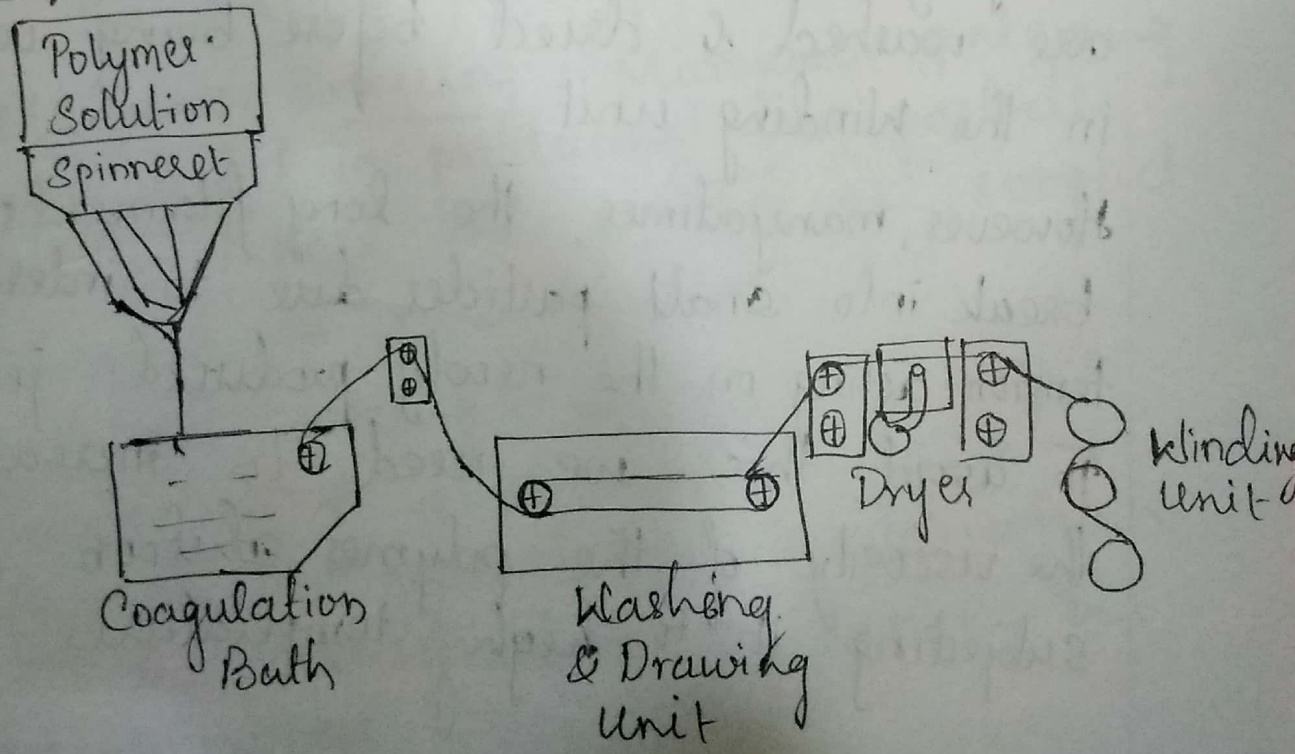 Polymer
Solution
Spinneret
Coagulation
Bath
Washing
& Drawing
Unit
Dryer
Winding
Unit